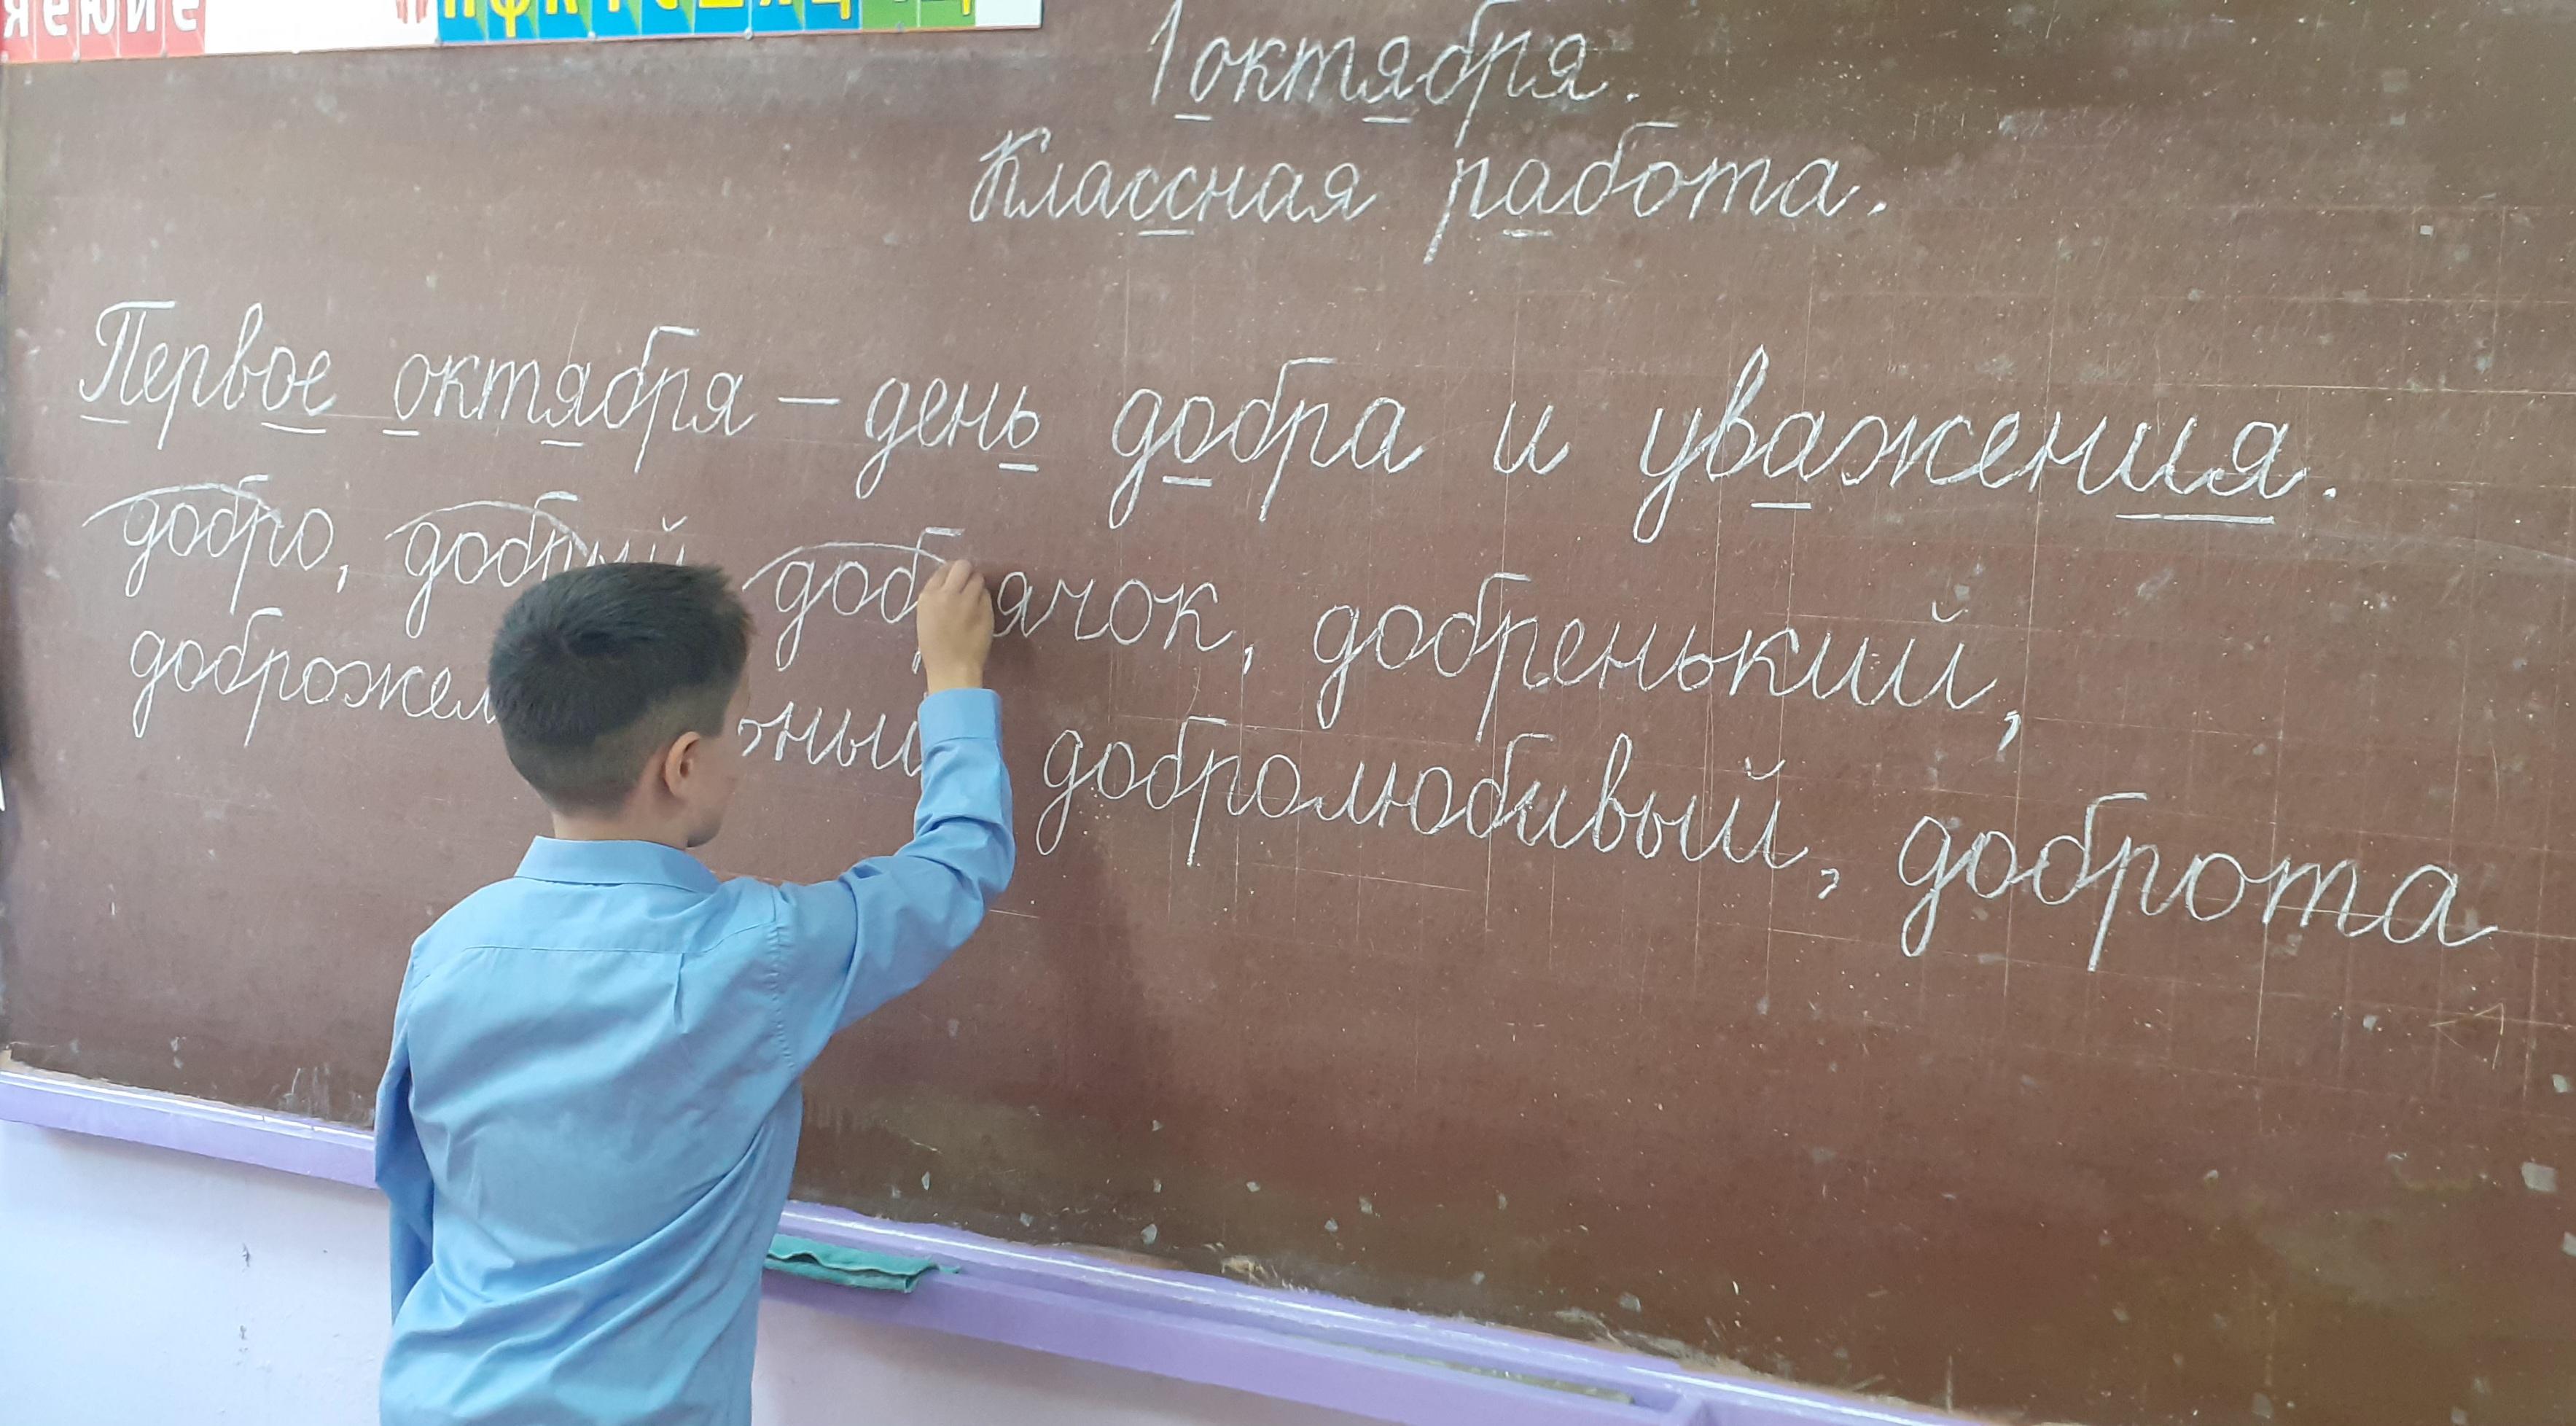 я е ю и е
1 октября.
Классная работа.
Первое октября – день добра и уважения.
добро, добрый, добрячок, добренький,
добролюбивый, доброта